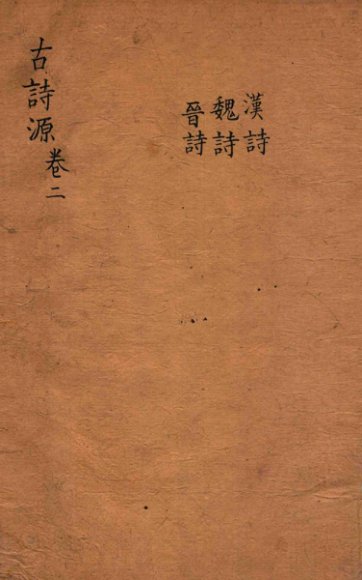 古詩源卷二
漢詩
魏詩
晉詩